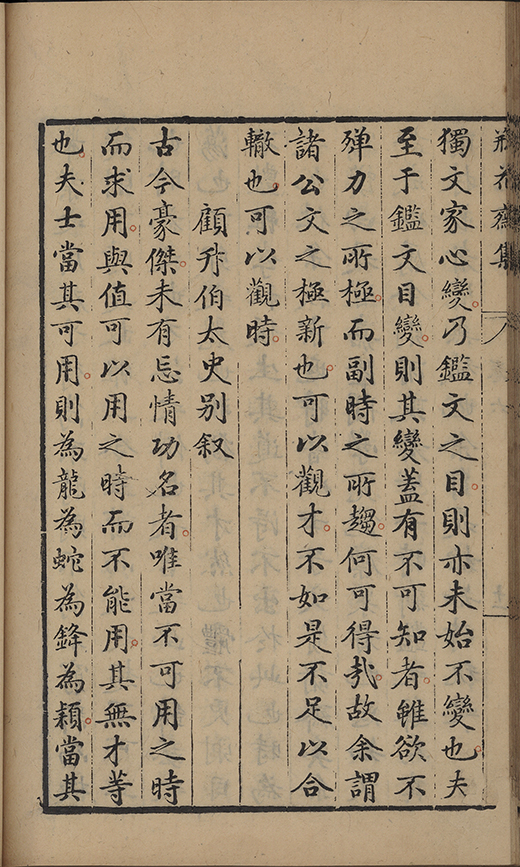 瓶花齋集
獨文家心變乃鑑文之目則亦未始不變也夫
至于鑑文目變則其變蓋有不可知者雖欲不
殫力之所極而副時之所趨何可得哉故余謂
諸公文之極新也可以觀才不如是不足以合
轍也可以觀時
顧升伯太史别叙
古今豪傑未有忘情功名者唯當不可用之時
而求用與值可以用之時而不能用其無才等
也夫士當其可用則為龍為蛇為鋒為穎當其